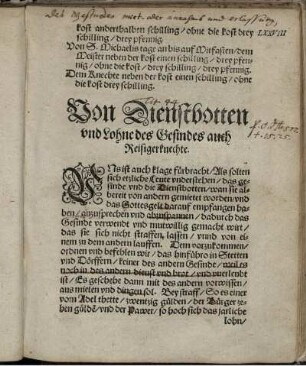 kost anderthalben schilling / ohne die kost drey LXXVIII
schilling / drey pfennig.
Von S. Michaelis tage an bis auf Mitfasten / dem
Meister neben der kost einen schilling / drey pfen-
nig / ohne die kost / drey schilling / drey pfennig.
Dem Knechte neben der kost einen schilling / ohne
die kost drey schilling.
Von Dienstbotten
vnd Lohne des Gesindes auch
Reisigerknechte.
VNs ist auch klage fürbracht / Als solten
sich etzliche Leut vnderstehen / das ge-
sinde vnd die Dienstbotten / wan sie al-
bereit von andern gemietet worden vnd
das Gottesgeld darauf empfangen ha-
ben / anzusprechen vnd abzuspannen / dadurch das
Gesinde verwendt vnd mutwillig gemacht wirt /
das sie sich nicht straffen lassen / vnnd von ei-
nem zu dem andern lauffen. Dem vorzukommen /
ordnen vnd befehlen wir / das hinfüro in Stetten
vnd Dörffern / keiner des andern Gesinde / weil es
noch in des andern dienst vnd brot / vnd vnerlenbt
ist / Es geschehe dann mit des andern vorwissen /
aus mieten vnd dingen sol. Bey straff / So es einer
vom Adel thette / zwentzig gülden / der Bürger ze-
hen güldē / vnd der Pawer / so hoch sich das jarliche
lohn /